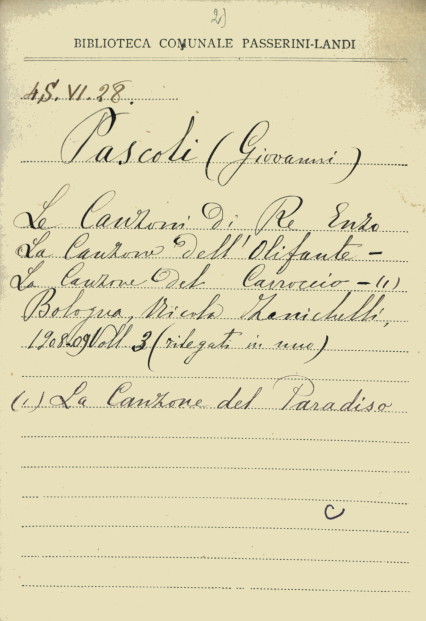 2)
BIBLIOTECA COMUNALE PASSERINI-LANDI
4S. VI. 28.
Pascoli (Giovanni)
Le Canzoni di Re Enzo
La Canzone dell'Olifante -
La Canzone del Carroccio - (1)
Bologna, Nicola Zanichelli,
1908-09 Voll 3 (rilegati in uno)
(1) La Canzone del Paradiso
C